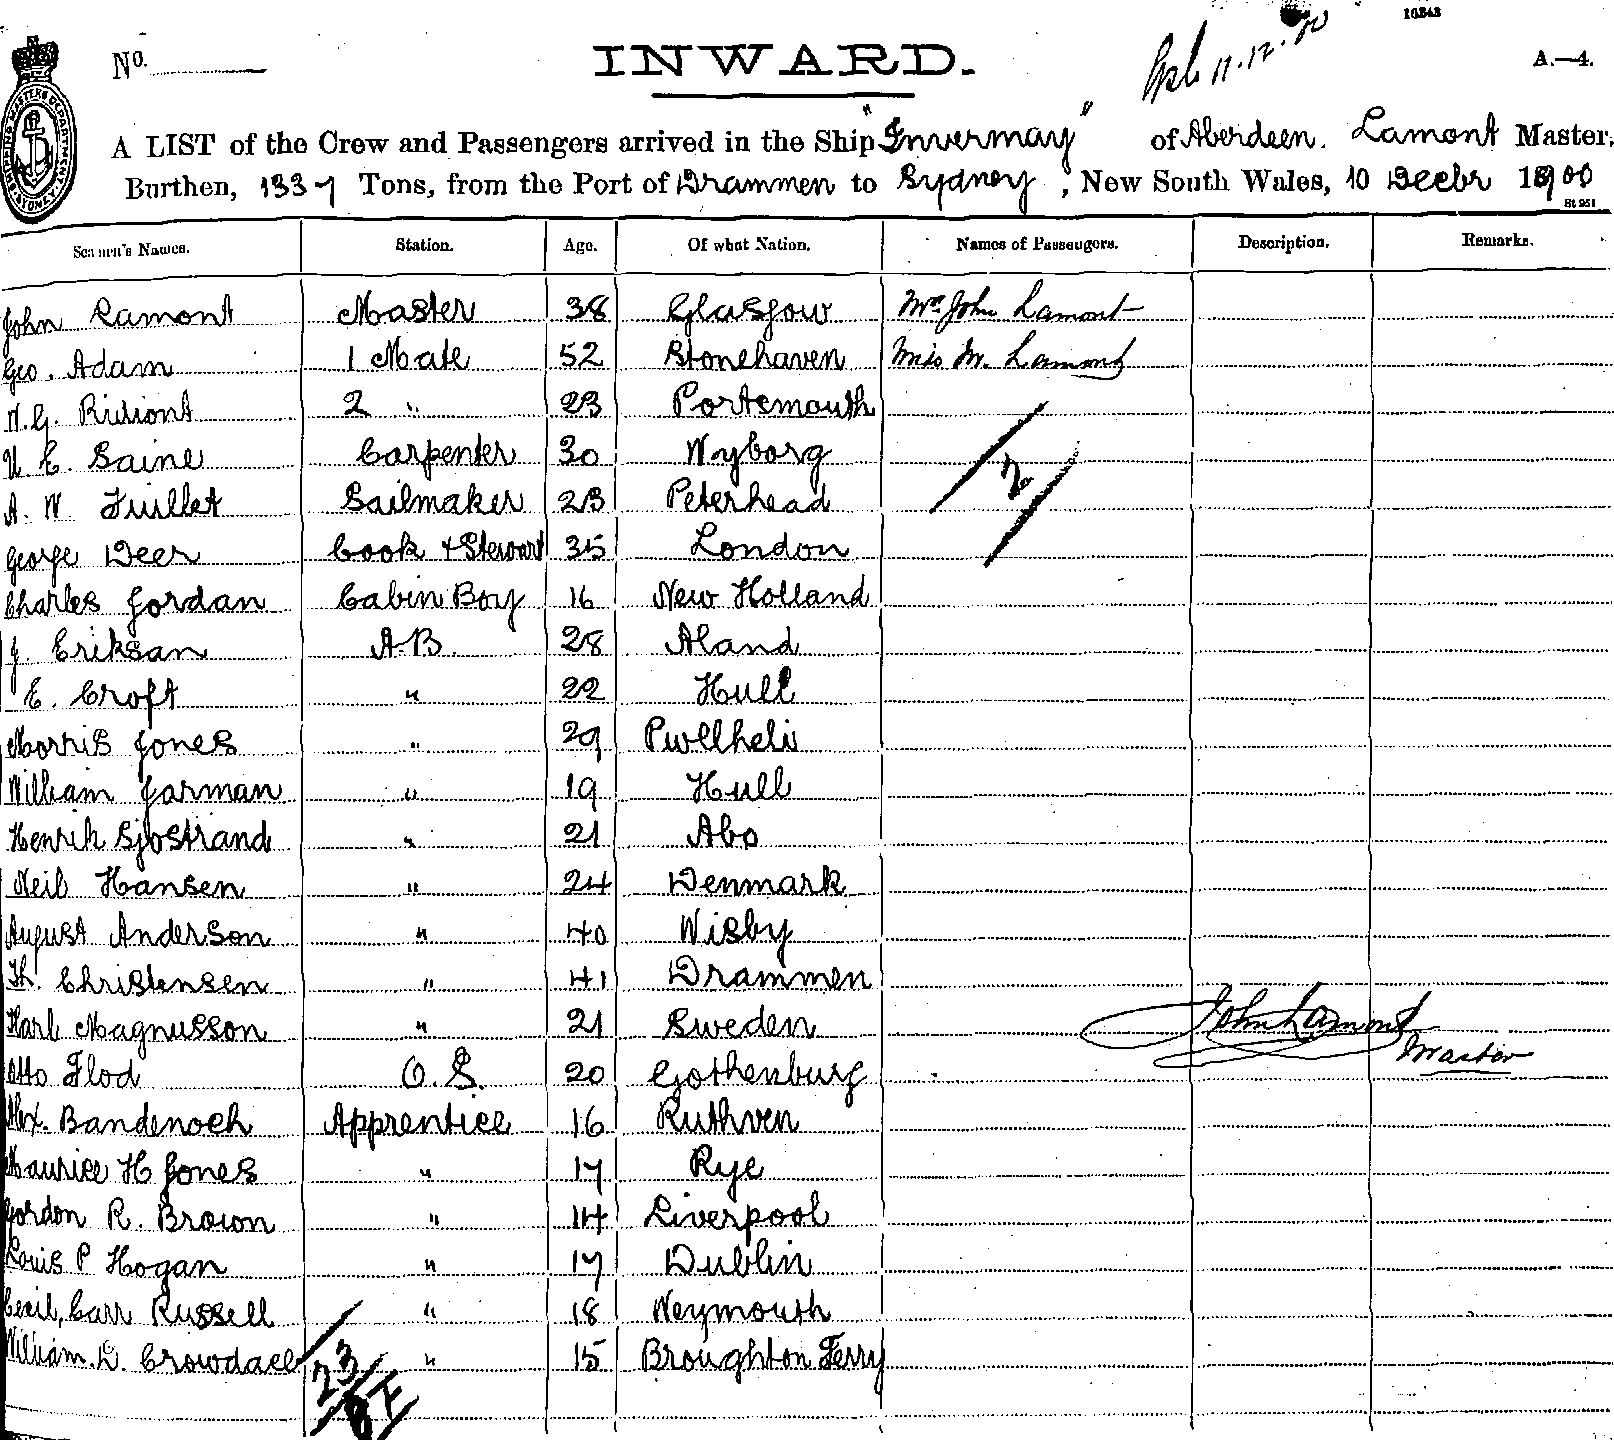 16343
No.
INWARD.
11.12.00
A.—4.
A LIST of the Crew and Passengers arrived in the Ship "Invermay" of Aberdeen. Lamont Master,
Burthen, 1337 Tons, from the Port of Drammen to Sydney, New South Wales, 10 Decbr 1900
St 251
Seamen's Names. Station. Age. Of what Nation. Names of Passengers. Description. Remarks.
John Lamont Master 38 Glasgow Mrs John Lamont
Geo. Adam 1 Mate 52 Stonehaven Miss M. Lamont
2 " 23 Portsmouth
E. Saine Carpenter 30 Wyborg
A. W Sailmaker 23 Peterhead
2
George Deer Cook & Steward 35 London
Charles Jordan Cabin Boy 16 New Holland
J. Eriksan A.B. 28 Aland
E. Croft " 22 Hull
Morris Jones " 29 Pwllheli
William Jarman " 19 Hull
Henrik Sjostrand " 21 Abo
Neil Hansen " 24 Denmark
August Anderson " 40 Wisby
Th. Christensen " 41 Drammen
Karl Magnusson " 21 Sweden John Lamont
Master
Otto Flod O.S. 20 Gothenburg
Alex. Bandenoch Apprentice 16 Ruthven
Maurice H Jones " 17 Rye
Gordon R. Brown " 14 Liverpool
Louis P Hogan " 17 Dublin
Cecil, Carr Russell " 18 Weymouth
William. D. Crowdace " 15 Broughton Ferry
23